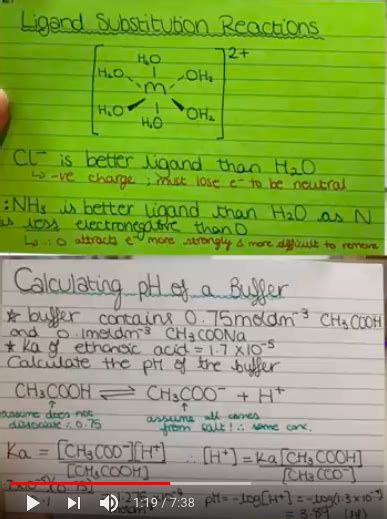 Ligand Substitution Reactions
2+
H₂O
H₂O OH₂
M
H₂O OH₂
H₂O
Cl⁻ is better ligand than H₂O
↳ -ve charge ; must lose e⁻ to be neutral
:NH₃ is better ligand than H₂O as N
is less electronegative than O
↳ ∴ O attracts e⁻ more strongly & more difficult to remove
Calculating pH of a Buffer
* buffer contains 0.75moldm⁻³ CH₃COOH
and 0.1moldm⁻³ CH₃COONa
* Ka of ethanoic acid = 1.7 × 10⁻⁵
Calculate the pH of the buffer
CH₃COOH ⇌ CH₃COO⁻ + H⁺
assume does not assume all comes
dissociate ∴ 0.75 from salt! ∴ same conc.
Ka = [CH₃COO⁻][H⁺] ∴ [H⁺] = Ka[CH₃COOH]
[CH₃COOH] [CH₃COO⁻]
(0.75) pH = -log[H⁺] = -log(1.3 × 10⁻⁴)
1:19 / 7:38
= 3.89 (3sf)